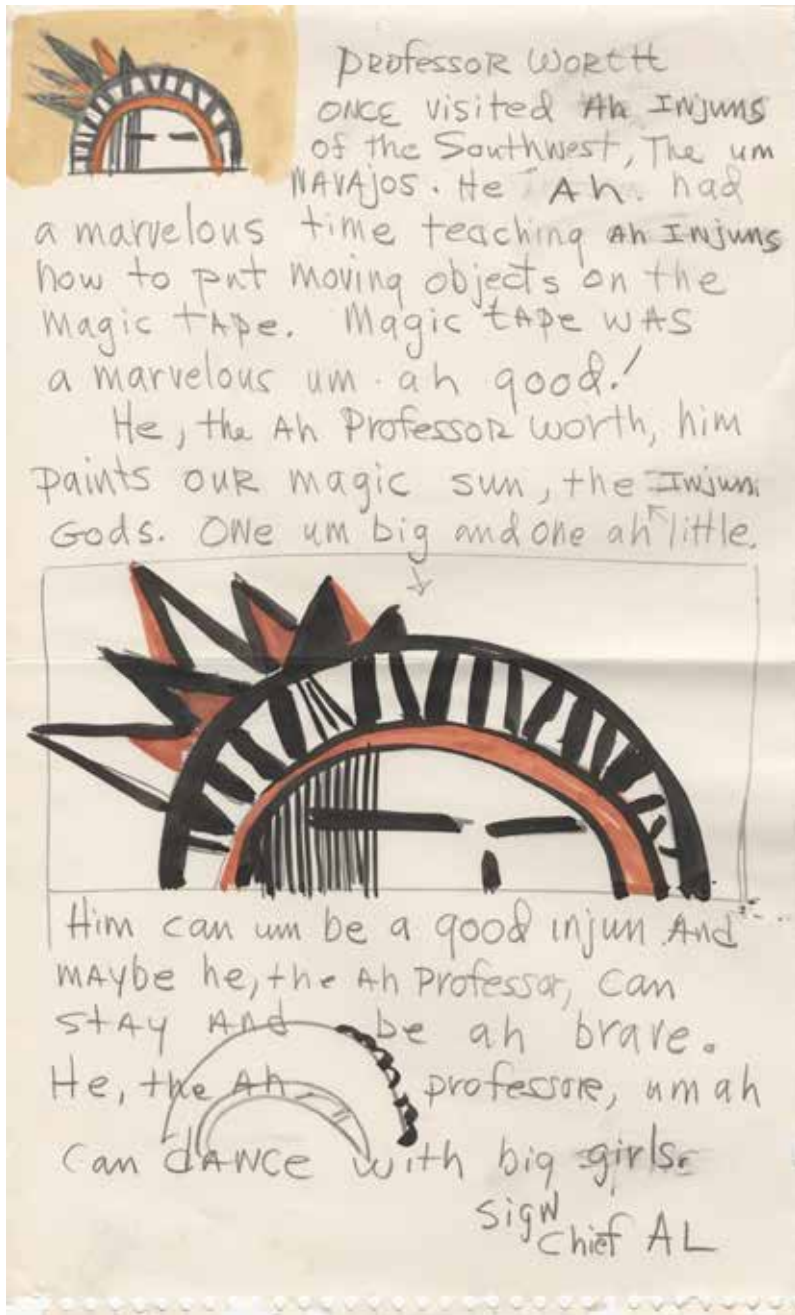 PROFESSOR WORTH
ONCE visited Ah Injuns
of the Southwest, The um
NAVAjos. He Ah. had
a marvelous time teaching Ah Injuns
how to put moving objects on the
magic tApe. Magic tApe WAS
a marvelous um. ah good!
He, the Ah Professor Worth, him
paints our magic sun, the Injuni
Gods. ONe um big and one ah little.
Him can um be a good injun And
mAybe he, the Ah Professor, can
stAy And be ah brave.
He, the Ah professore, um ah
can dANCe with big girls.
SigN
Chief AL